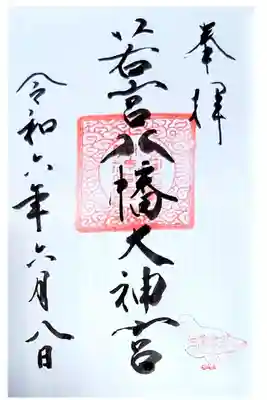 奉拝
若宮八幡大神宮
令和六年六月八日